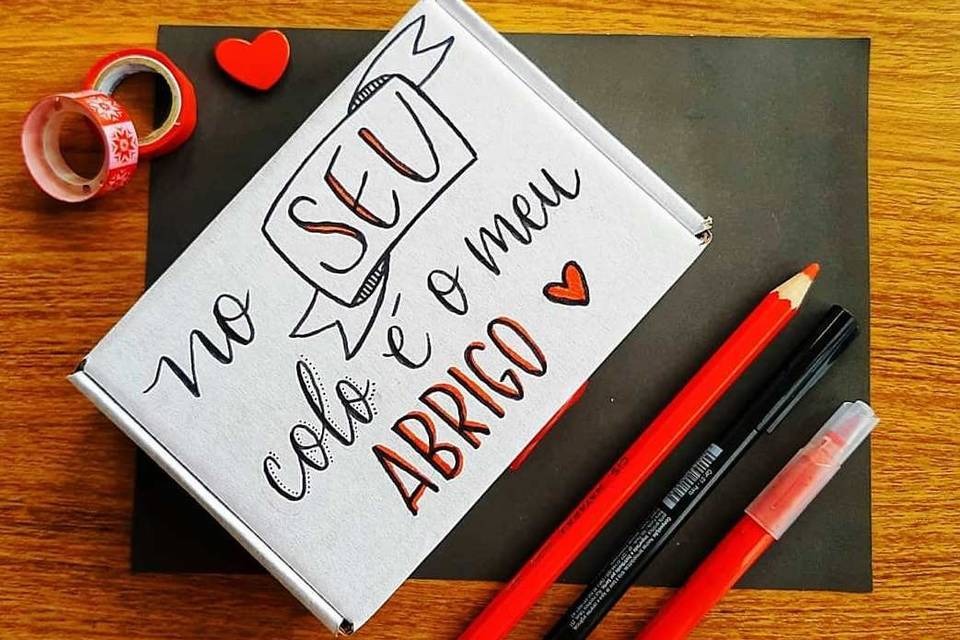 no SEU
colo é o meu
ABRIGO